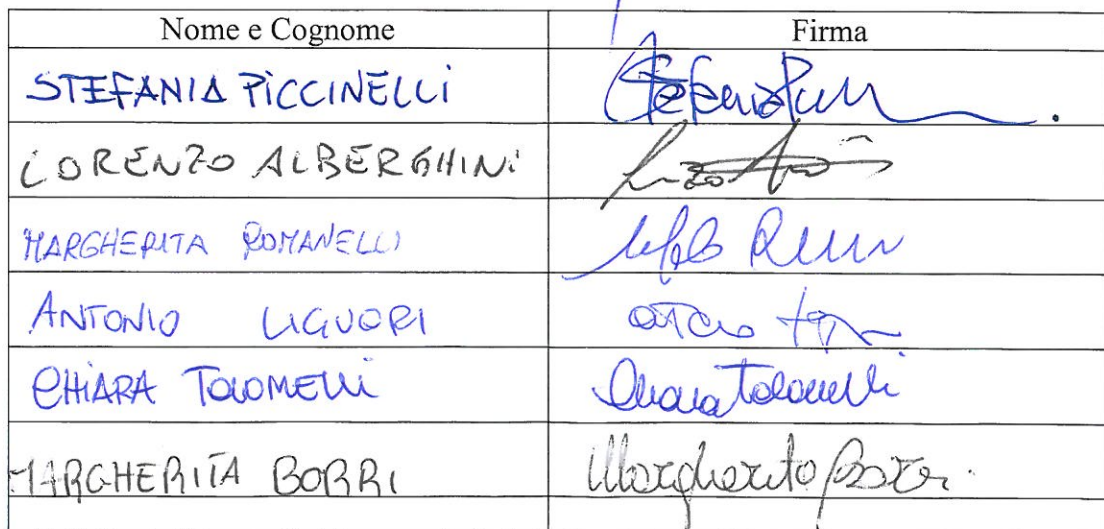 Nome e Cognome Firma
STEFANIA PICCINELLI
LORENZO ALBERGHINI
MARGHERITA ROMANELLI
ANTONIO LIGUORI
CHIARA TOLOMELLI Chiara Tolomelli
MARGHERITA BORRI Margherita Borri